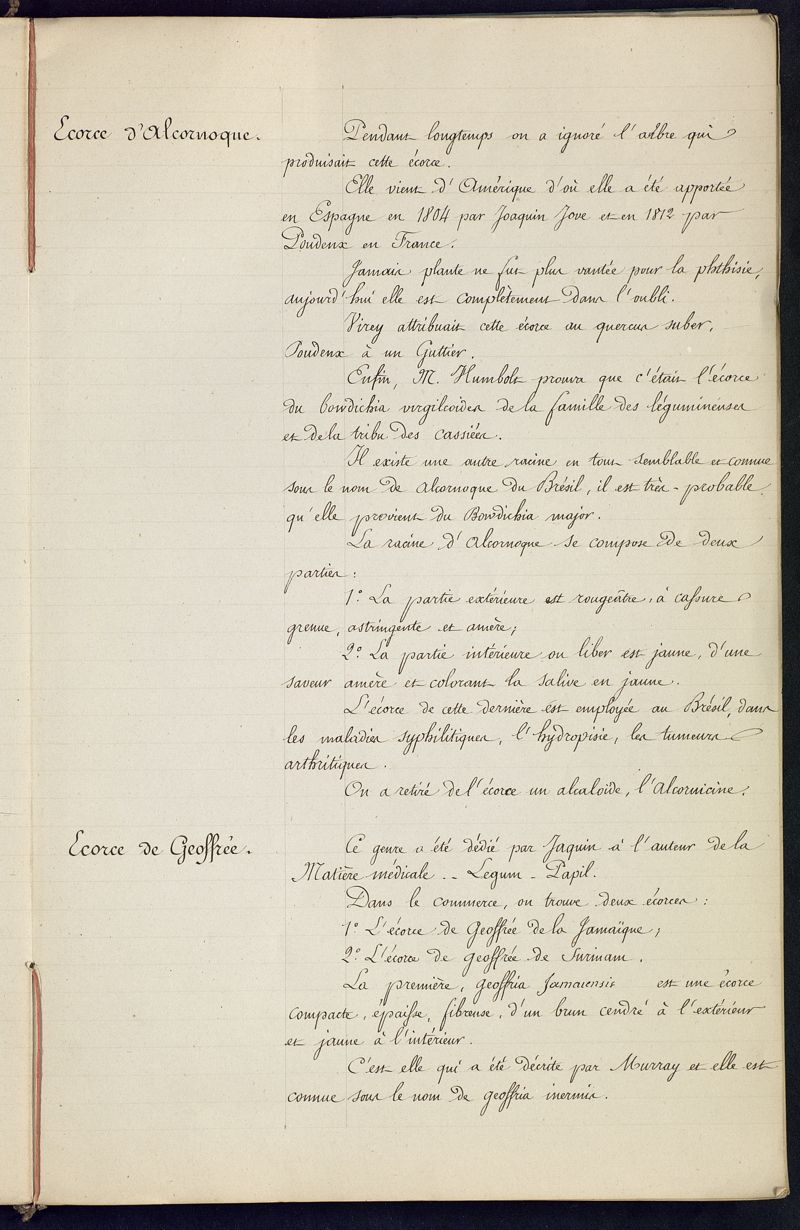 Ecorce d'Alcornoque.
Pendant longtemps on a ignoré l'arbre qui
produisait cette écorce.
Elle vient d'Amérique d'où elle a été apportée
en Espagne en 1804 par Joaquin Jove et en 1812 par
Poudenx en France.
Jamais plante ne fut plus vantée pour la phthisie,
aujourd'hui elle est complètement dans l'oubli.
Virey attribuait cette écorce au quercus suber,
Poudenx à un Guttier.
Enfin, M. Humbolt prouva que c'était l'écorce
du bowdichia virgilcoïdes de la famille des légumineuses
et de la tribu des cassiées.
Il existe une autre racine en tout semblable et connue
sous le nom de alcornoque du Brésil, il est très-probable
qu'elle provient du Bowdichia major.
La racine d'Alcornoque se compose de deux
parties:
1° La partie extérieure est rougeâtre, à cassure
grenue, astringente et amère;
2° La partie intérieure ou liber est jaune, d'une
saveur amère et colorant la salive en jaune.
L'écorce de cette dernière est employée au Brésil, dans
les maladies syphilitiques, l'hydropisie, les tumeurs
arthritiques.
On a retiré de l'écorce un alcaloïde, l'Alcornicine.
Ecorce de Geoffrée.
Ce genre a été dédié par Jaquin à l'auteur de la
Matière médicale. - Legum - Papil.
Dans le commerce, on trouve deux écorces:
1° L'écorce de Geoffrée de la Jamaïque;
2° L'écorce de Geoffrée de Surinam.
La première, geoffria Jamaiensis est une écorce
compacte, épaisse, fibreuse, d'un brun cendré à l'extérieur
et jaune à l'intérieur.
C'est elle qui a été décrite par Murray et elle est
connue sous le nom de geoffria inermis.